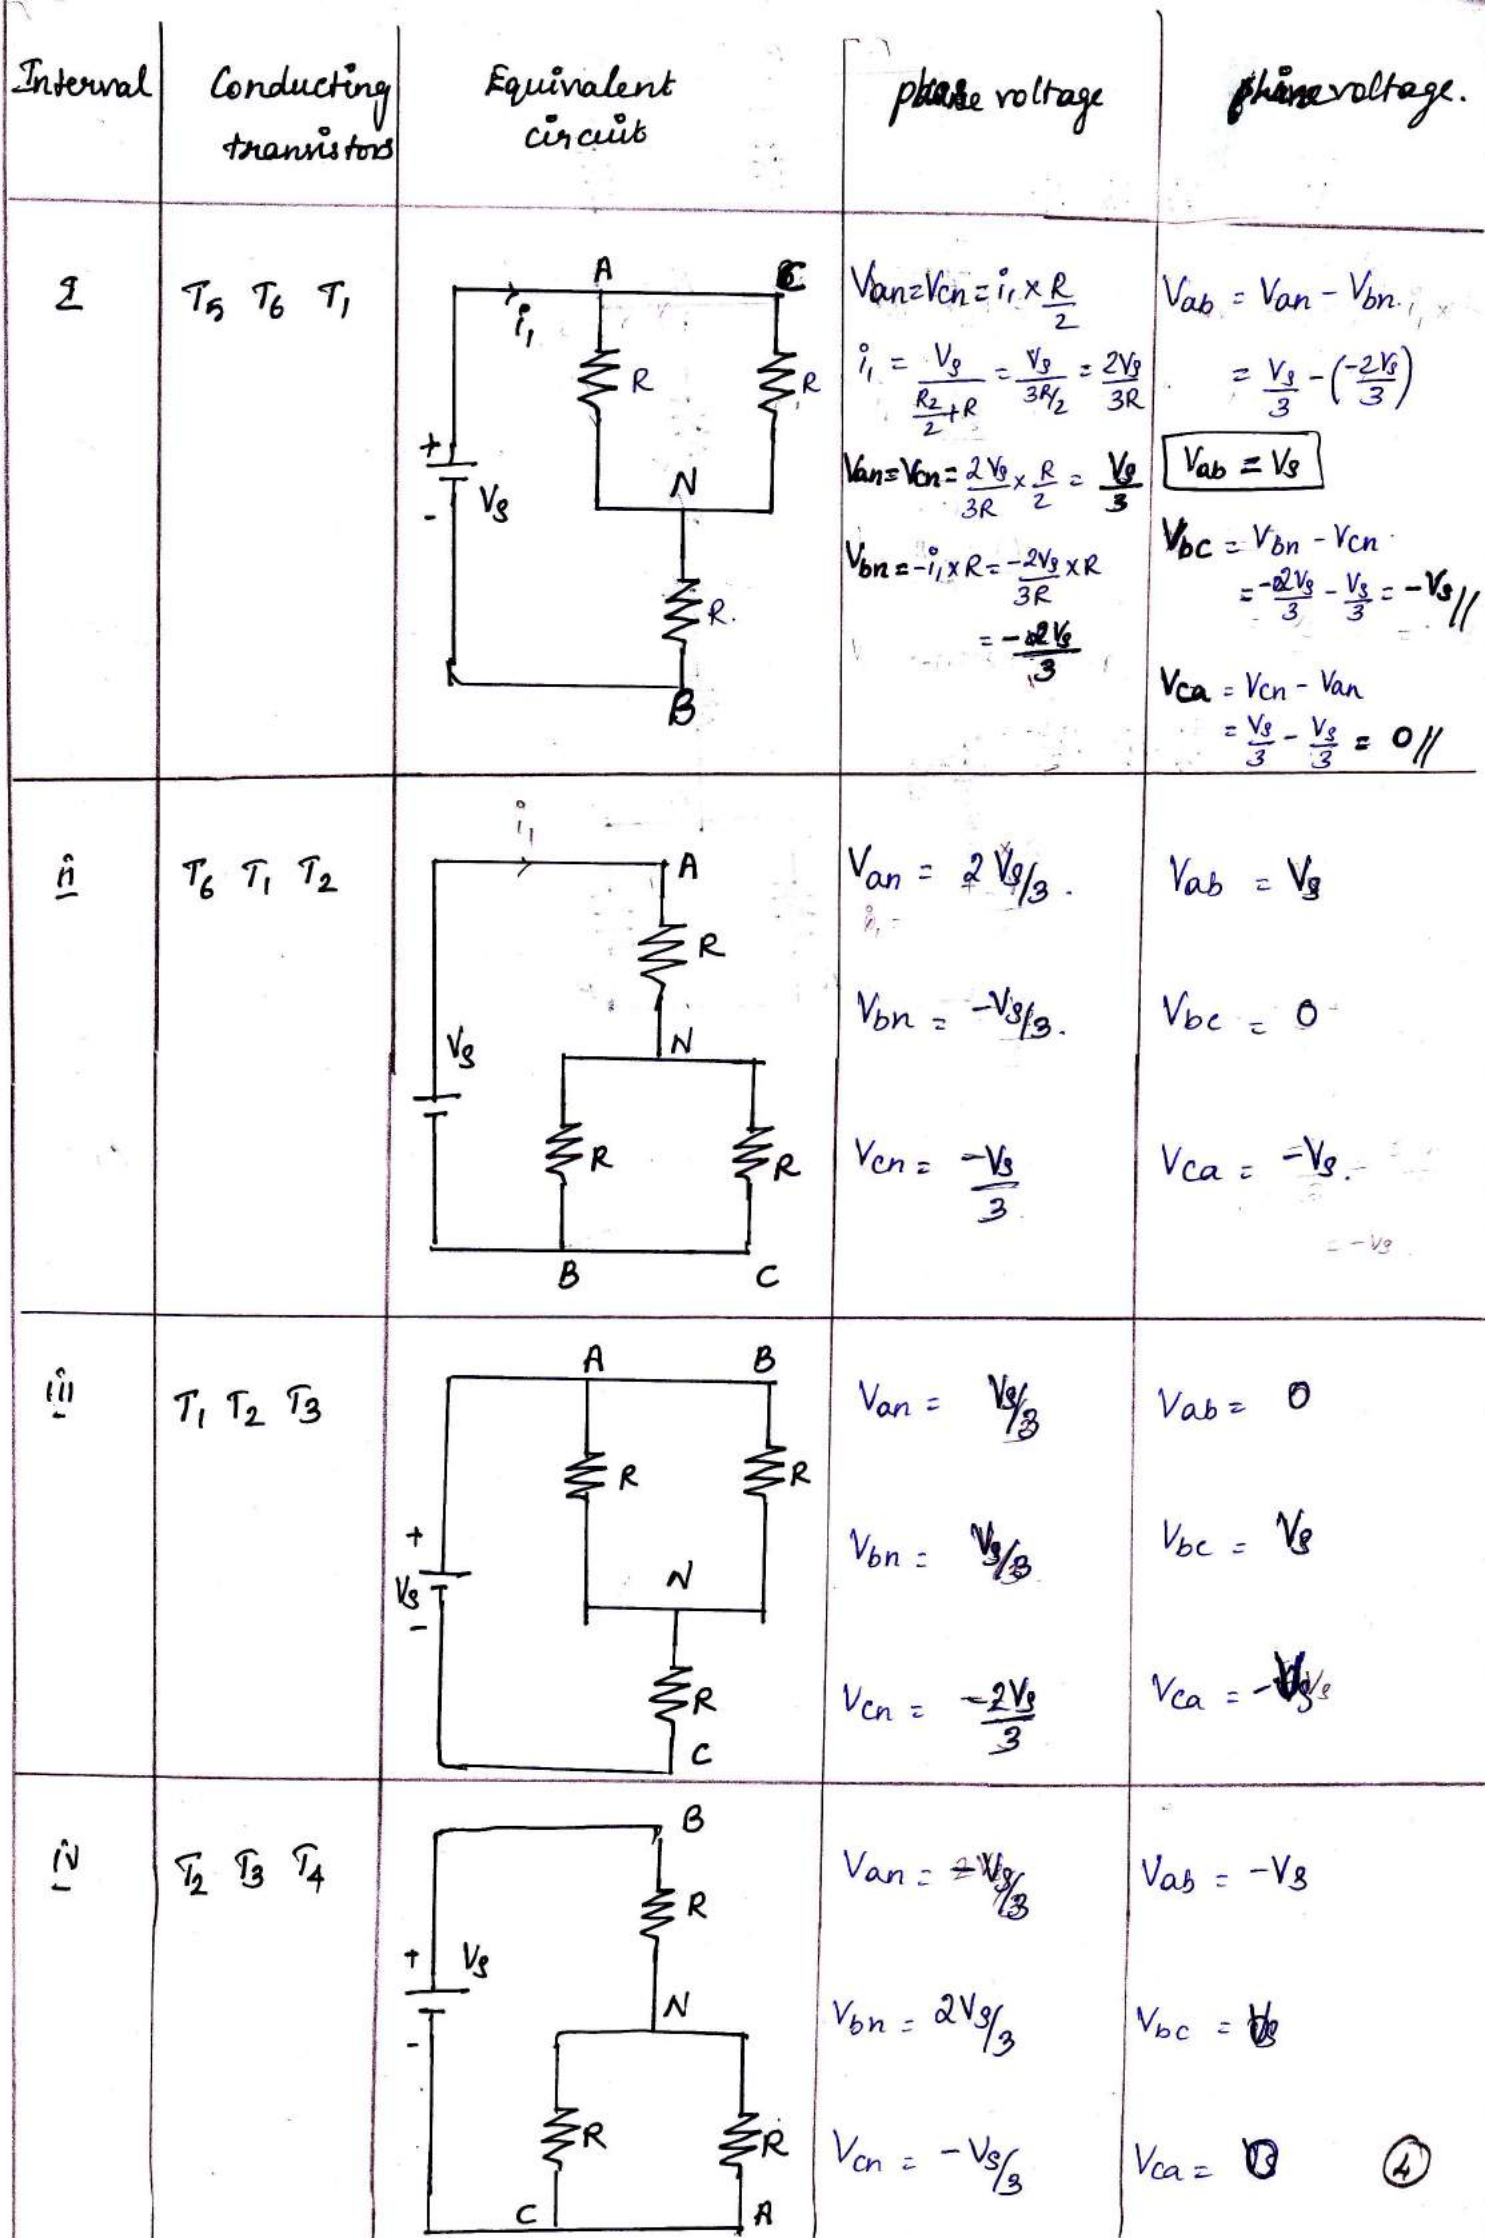 Interval Conducting transistors Equivalent circuit phase voltage voltage.
I T5 T6 T1
A C
i1
R R
+
Vs
-
N
R.
B
Van=Vcn=i1×R/2
i1 = Vs/(R2/2+R) = Vs/(3R/2) = 2Vs/3R
Van=Vcn=2Vs/3R × R/2 = Vs/3
Vbn=-i1×R=-2Vs/3R ×R
=-2Vs/3
Vab = Van - Vbn.
= Vs/3 - (-2Vs/3)
Vab = Vs
Vbc = Vbn - Vcn
= -2Vs/3 - Vs/3 = -Vs//
Vca = Vcn - Van
= Vs/3 - Vs/3 = 0//
ii T6 T1 T2
i1
A
R
N
Vs
R R
B C
Van = 2Vs/3.
i1 =
Vbn = -Vs/3.
Vcn = -Vs/3
Vab = Vs
Vbc = 0
Vca = -Vs.
= -Vs
iii T1 T2 T3
A B
R R
+
Vs
-
N
R
C
Van = Vs/3
Vbn = Vs/3
Vcn = -2Vs/3
Vab = 0
Vbc = Vs
Vca = -Vs
iv T2 T3 T4
B
R
+ Vs
-
N
R R
C A
Van = -Vs/3
Vbn = 2Vs/3
Vcn = -Vs/3
Vab = -Vs
Vbc = Vs
Vca = 0
4